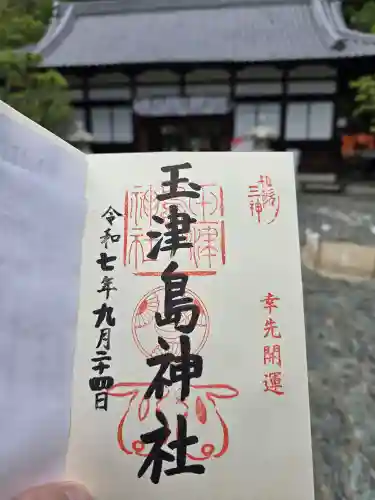 和歌ノ三神
幸先開運
玉津島神社
玉津島神社
令和七年九月二十四日